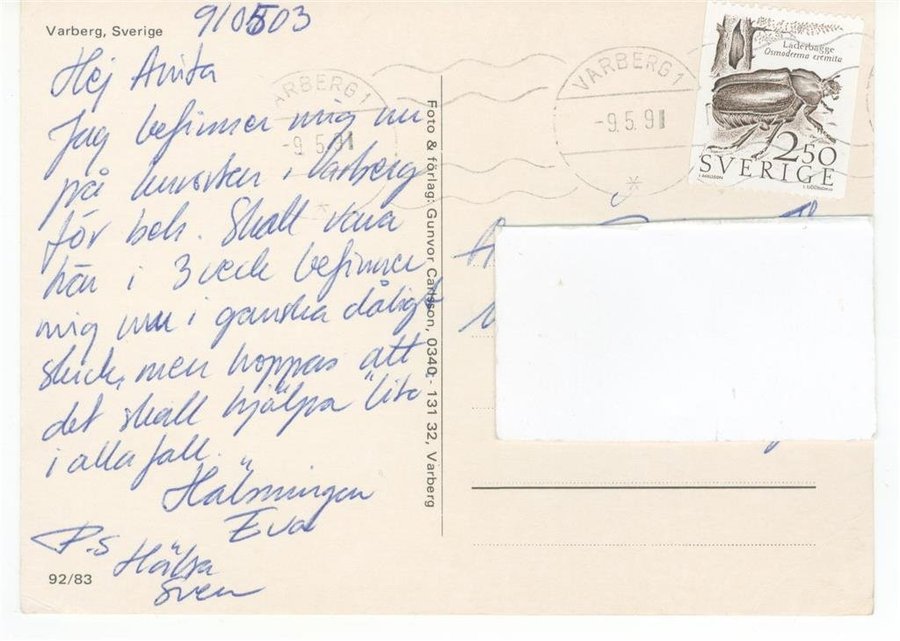 Varberg, Sverige
910503
Hej Anita
Jag befinner mig nu
på kurorten i Varberg
för beh. Skall vara
här i 3 veck befinner
mig nu i ganska dåligt
skick, men hoppas att
det skall hjälpa lite
i alla fall.
Hälsningen
Eva
P.S
Hälsa
Sven
92/83
Foto & förlag: Gunvor Carlsson, 0340 - 131 32, Varberg
VARBERG 1
-9.5.91
VARBERG 1
-9.5.91
Läderbagge
Osmoderma eremita
2.50
SVERIGE